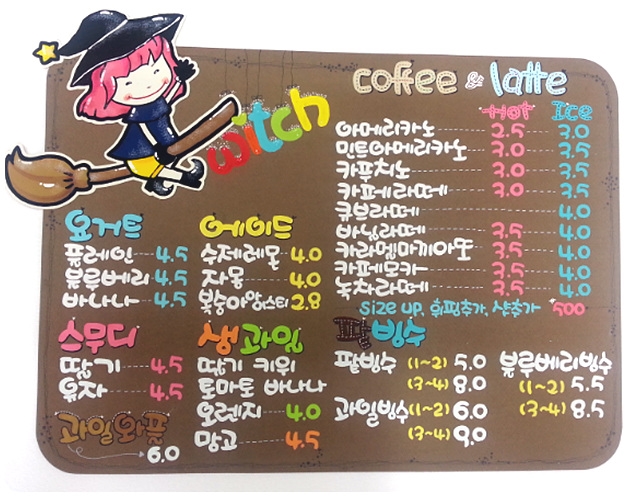 witch
coffee & latte
Hot Ice
아메리카노 2.5 3.0
민트아메리카노 3.0 3.5
카푸치노 3.0 3.5
카페라떼 3.0 3.5
큐브라떼 4.0
바닐라떼 3.5 4.0
카라멜마끼아또 3.5 4.0
카페모카 3.5 4.0
녹차라떼 3.5 4.0
size up, 휘핑추가, 샷추가 500
요거트
플레인 4.5
블루베리 4.5
바나나 4.5
에이드
수제레몬 4.0
자몽 4.0
복숭아아이스티 2.8
스무디
딸기 4.5
유자 4.5
과일와플
6.0
생과일
딸기 키위
토마토 바나나
오렌지 4.0
망고 4.5
팥빙수
팥빙수 (1~2) 5.0
(3~4) 8.0
과일빙수 (1~2) 6.0
(3~4) 9.0
블루베리빙수
(1~2) 5.5
(3~4) 8.5